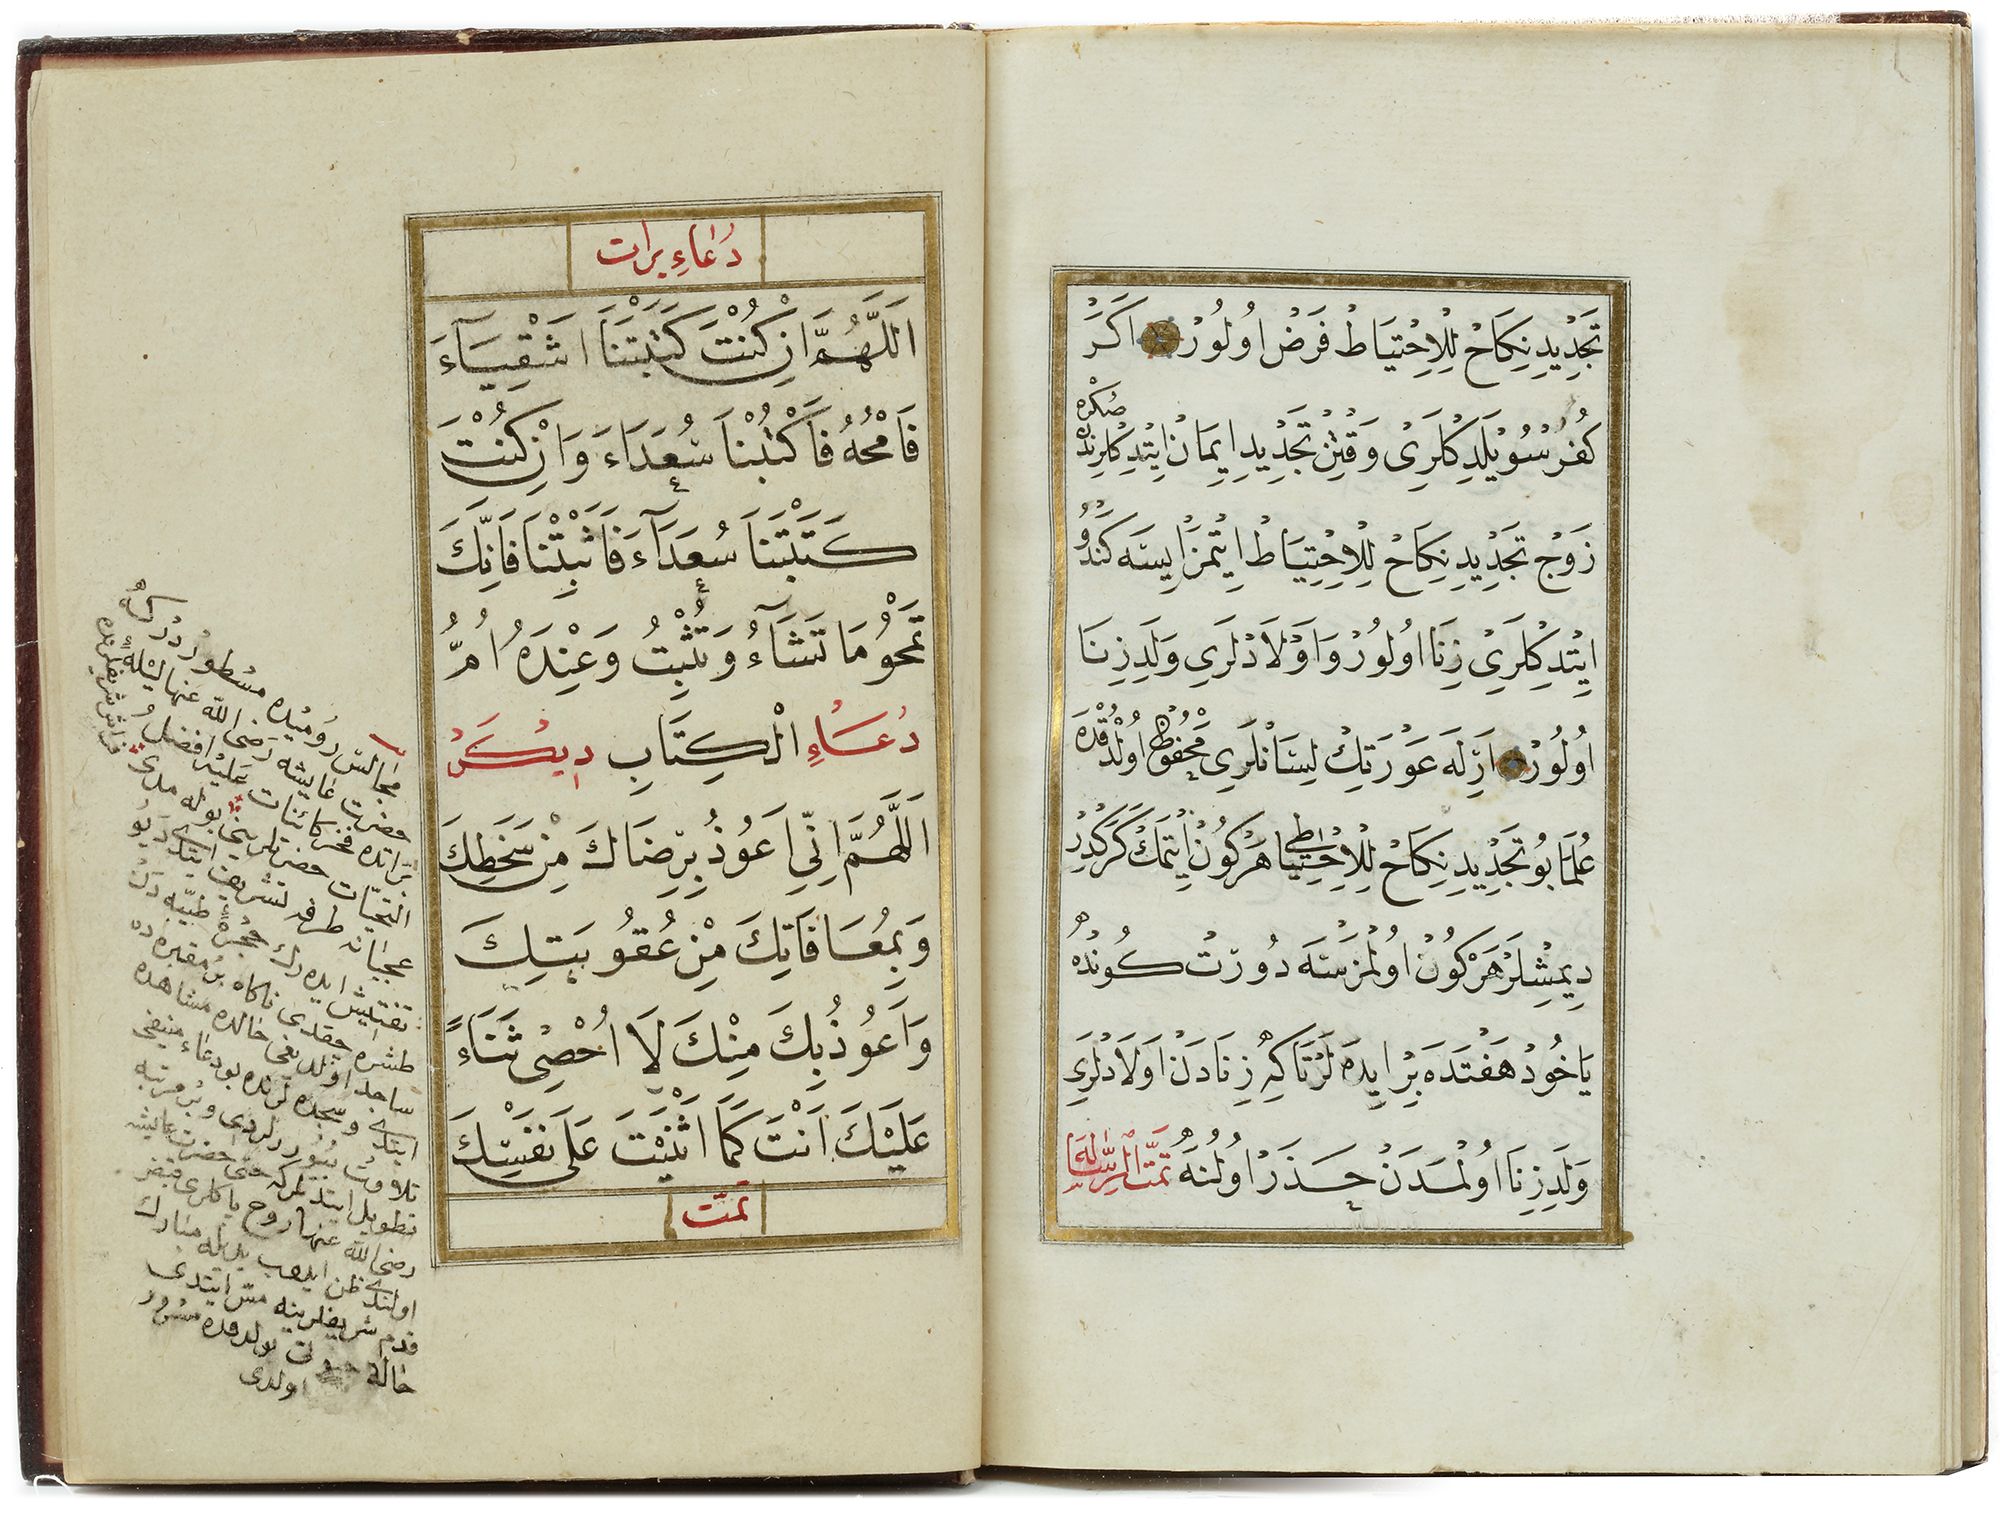 تَجْدِيدِ نِكَاحْ لِلْاِحْتِيَاطْ فَرَضْ اُولُورْ اَكَرْ
كُفُرْ سُوْيْلَدِكْلَرِى وَقْتِنْ تَجْدِيدِ اِيمَانْ اِيْتِدِكْلَرِنْدَنْ صُكْرَه
زَوْجْ تَجْدِيدِ نِكَاحْ لِلْاِحْتِيَاطْ اِيْتْمَزْ اِيسَه كَنْدُو
اِيْتِدِكْلَرِىْ زِنَا اُولُورْ وَاَوْلَادْلَرِى وَلَدِ زِنَا
اُولُورْ اَرِلَه عَوْرَتِكْ لِسَانْلَرِى مَحْفُوظْ اُولْمَدُقْدَه
عُلَمَا بُو تَجْدِيدِ نِكَاحْ لِلْاِحْتِيَاطِى هَرْكُونْ اِيْتْمَكْ كَرَكْدِرْ
دِيمِشْلَرْ هَرْكُونْ اُولْمَزْسَه دُورْتْ كُونْدَه
يَاخُودْ هَفْتَدَه بِرْ اِيدَه لَرْتَاكِه زِنَادَنْ اَوْلَادْلَرِى
وَلَدِ زِنَا اُولْمَدَنْ حَذَرْ اُولُنَه تَمَّتِ الرِّسَالَه
دُعَاءِ بَرَات
اَللَّهُمَّ اِنْ كُنْتَ كَتَبْتَنَا اَشْقِيَآءَ
فَامْحُهُ فَاكْتُبْنَا سُعَدَاءَ وَاِنْ كُنْتَ
كَتَبْتَنَا سُعَدَآءَ فَاثْبِتْنَا فَاِنَّكَ
تَمْحُو مَا تَشَآءُ وَتُثْبِتُ وَعِنْدَهُ اُمُّ
دُعَاءِ الْكِتَابِ دِيكَرْ
اَللَّهُمَّ اِنِّى اَعُوذُ بِرِضَاكَ مِنْ سَخَطِكَ
وَبِمُعَافَاتِكَ مِنْ عُقُوبَتِكَ
وَاَعُوذُ بِكَ مِنْكَ لَا اُحْصِى ثَنَاءً
عَلَيْكَ اَنْتَ كَمَا اَثْنَيْتَ عَلَى نَفْسِكَ
تمّت
مجالس روميده مسطور دركه
حضرت عايشه رضى الله عنها ليلهٔ
براتده فخر كائنات عليه افضل
التحيات حضرتلرينى بوله مدى
طرفه تشريف ايتدى ديو
تفتيش ايدهرك حجرهٔ طيبه دن
طشره چقدى ناكاه بر مقبره ده
ساجد اولديغى حالده مشاهده
ايتدى وسجده لرنده بو دعاء
تلاوت بيورر لردى وبر مرتبه
تطويل ايتديلركه حتى حضرت عايشه
رضى الله عنها روح پاكلرى قبض
اولندى ظن ايدوب يديله مبارك
قدم شريفلرينه مس ايتدى
حاله بولدقده مسرور
اولدى